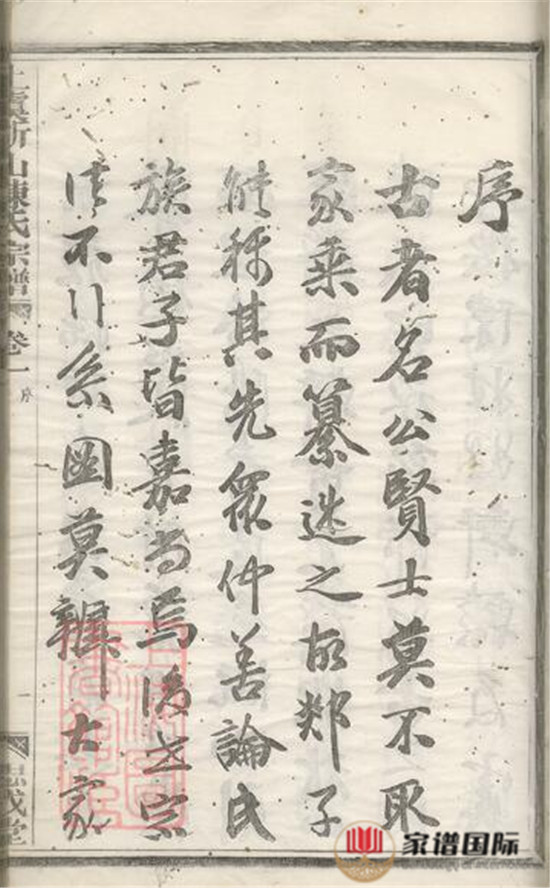 序
古者名公賢士莫不取
家乘而纂述之故郯子
能稱其先衆仲善論氏
族君子皆嘉尚焉後世宗
法不行系圖莫辨大家
上虞新山陳氏宗譜
卷一
序
一
忠成堂
家谱国际